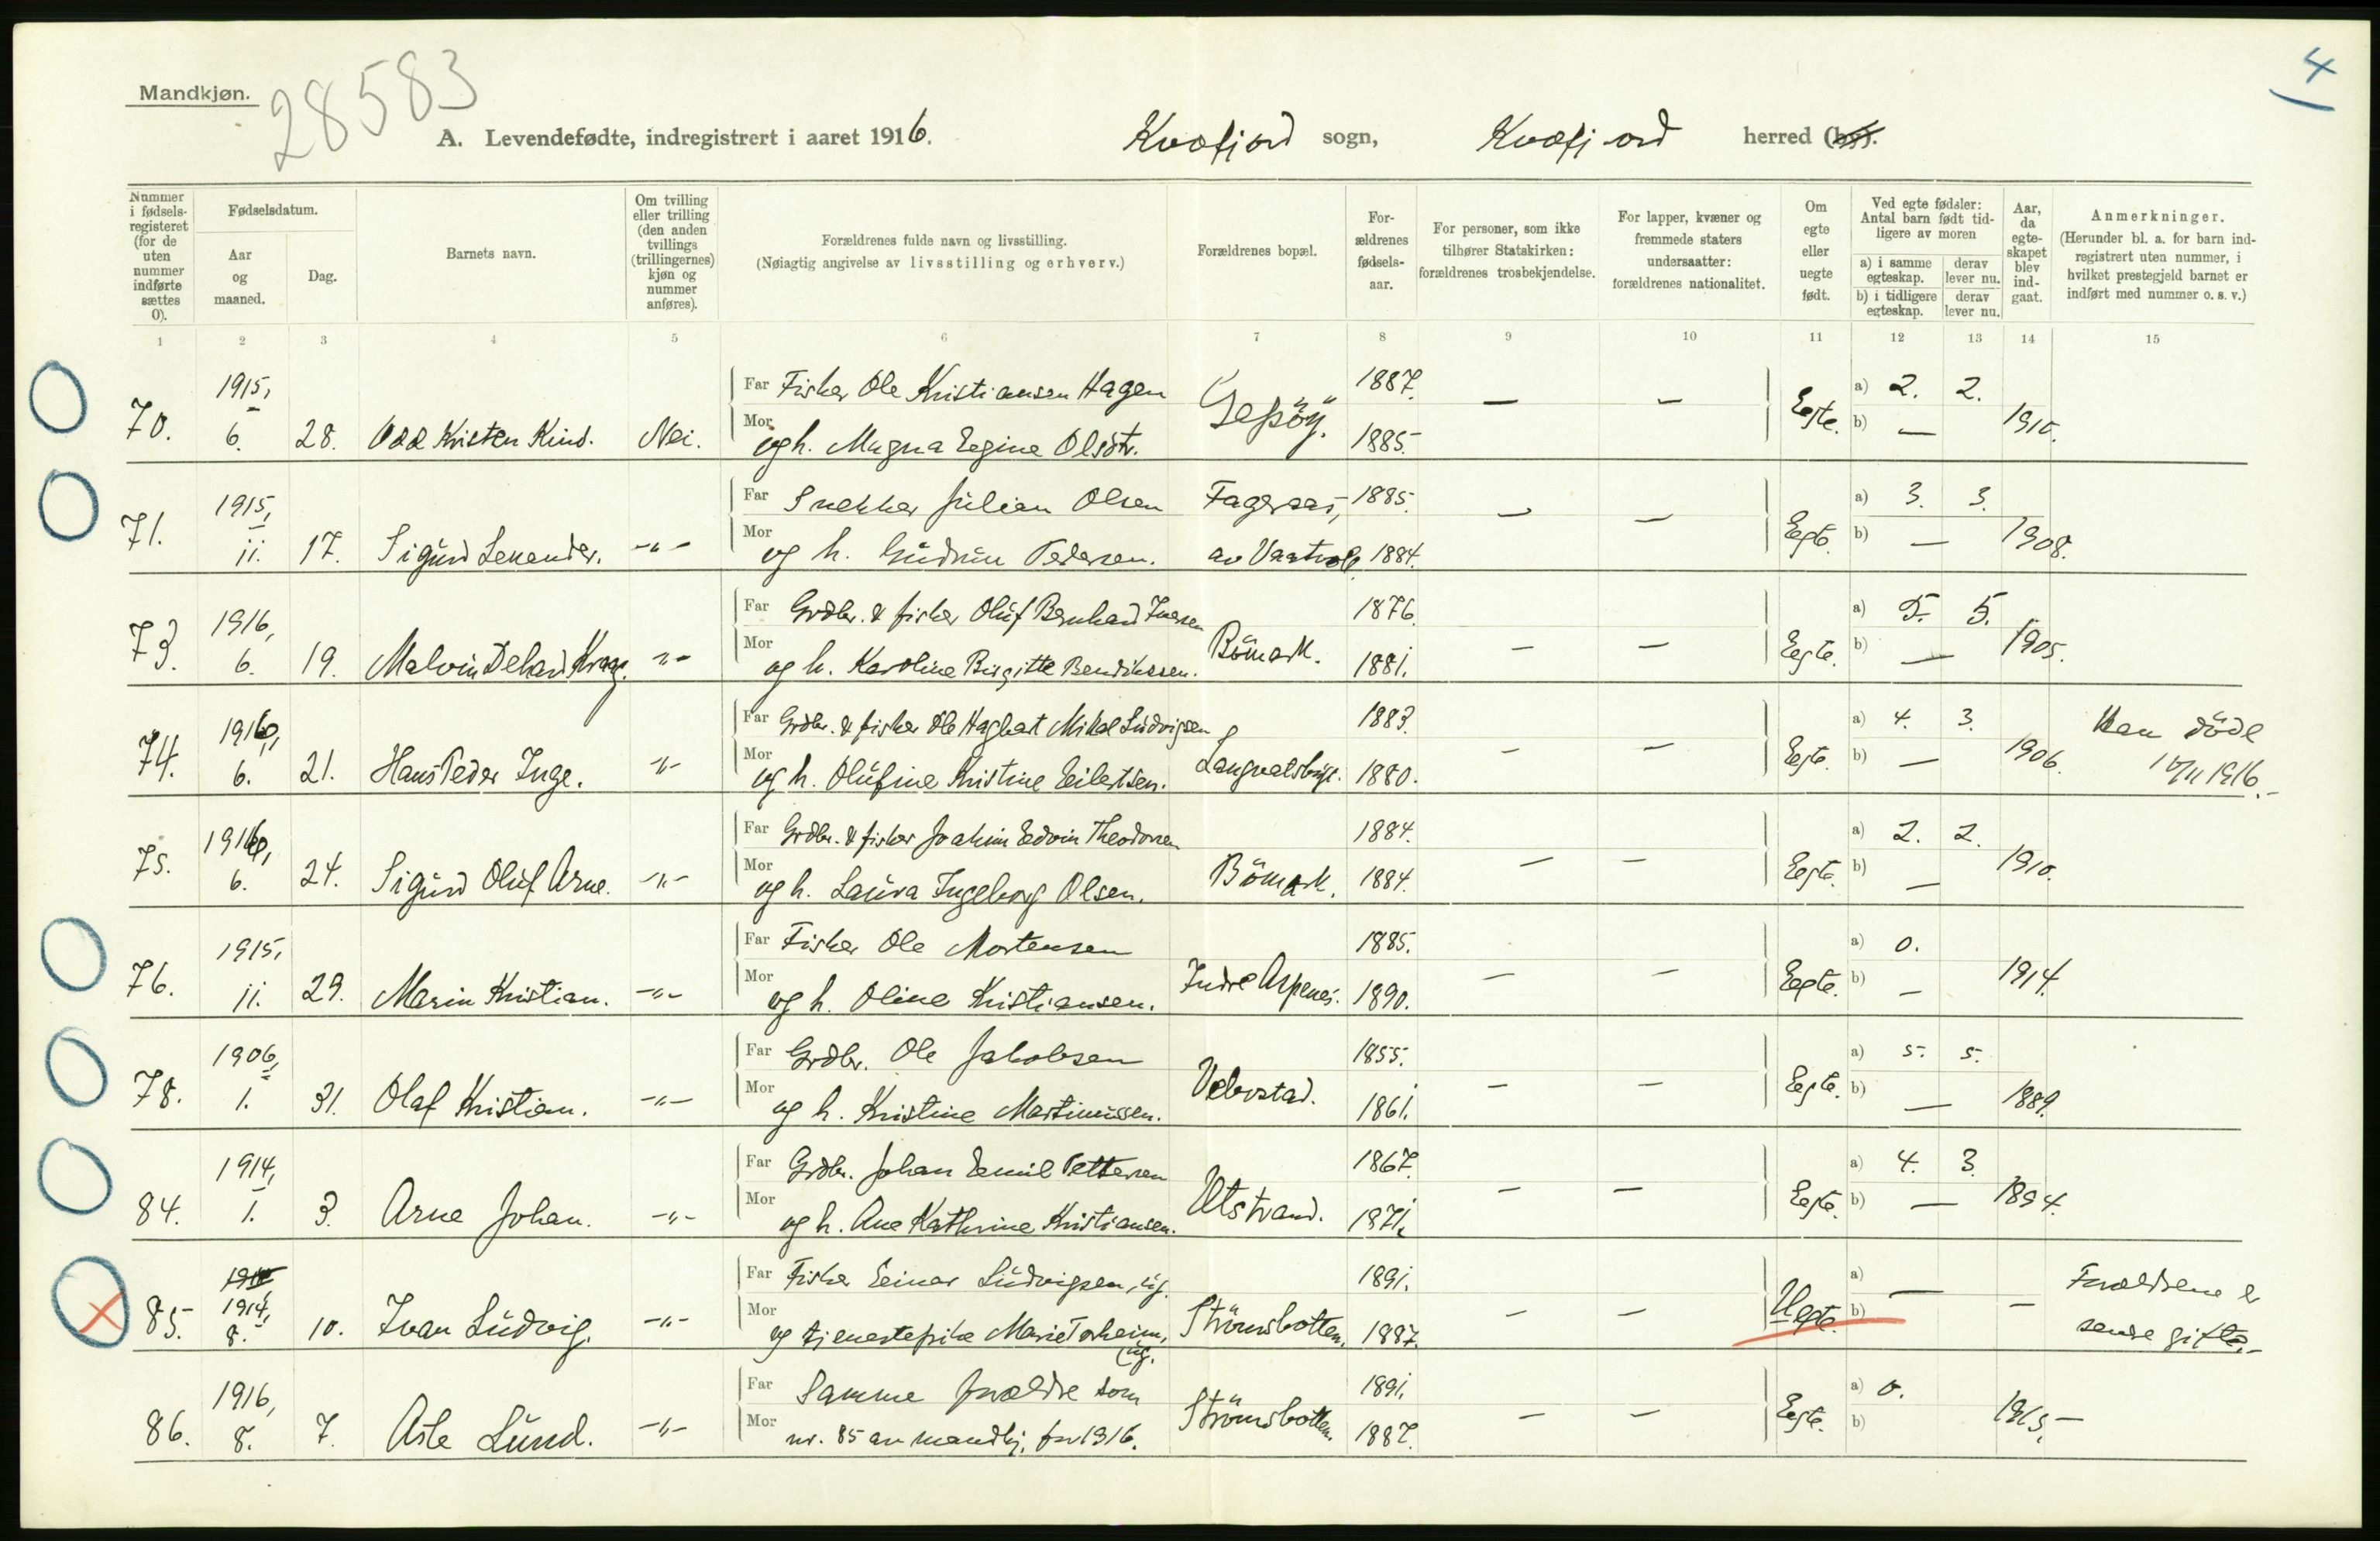 4
Mandkjøn.
28583
A. Levendefødte, indregistrert i aaret 1916. Kvæfjord sogn, Kvæfjord herred (by).
Nummer i fødsels-registeret (for de uten nummer indførte sættes 0).
Fødselsdatum.
Aar og maaned.
Dag.
Barnets navn.
Om tvilling eller trilling (den anden tvillings (trillingernes) kjøn og nummer anføres).
Forældrenes fulde navn og livsstilling.
(Nøiagtig angivelse av livsstilling og erhverv.)
Forældrenes bopæl.
For-ældrenes fødsels-aar.
For personer, som ikke tilhører Statskirken: forældrenes trosbekjendelse.
For lapper, kvæner og fremmede staters undersaatter: forældrenes nationalitet.
Om egte eller uegte født.
Ved egte fødsler: Antal barn født tid-ligere av moren
a) i samme egteskap. derav lever nu.
b) i tidligere egteskap. derav lever nu.
Aar, da egte-skapet blev ind-gaat.
Anmerkninger.
(Herunder bl. a. for barn ind-registrert uten nummer, i hvilket prestegjeld barnet er indført med nummer o. s. v.)
1 2 3 4 5 6 7 8 9 10 11 12 13 14 15
1915, Far Fisker Ole Kristiansen Hagen 1887. — — a) 2. 2.
70. 6. 28. Odd Kristen Kind. Nei. Mor og h. Magna Regine Olsdtr. Gepöy. 1885. Egte. b) — 1910.
1915, Far Snekker Julian Olsen Fageraas, 1885. — — a) 3. 3.
71. 11. 17. Sigurd Lenander. -"- Mor og h. Gudrun Pedersen. av Vaatvold 1884. Egte. b) — 1908.
1916, Far Grdbr. & fisker Oluf Bernhard Iversen 1876. a) 5. 5.
73. 6. 19. Malvin Dehard Krag. -"- Mor og h. Karoline Birgitte Bendiksen. Bömark. 1881. — — Egte. b) — 1905.
1916, Far Grdbr. & fisker Ole Hagbart Mikal Ludvigsen 1883. a) 4. 3. Han döde
74. 6. 21. Hans Peder Inge. -"- Mor og h. Olufine Kristine Eilertsen. Langvatsbugt. 1880. — — Egte. b) — 1906. 1916.-
1916, Far Grdbr. & fisker Joakim Edvin Theodorsen 1884. a) 2. 2.
75. 6. 24. Sigurd Oluf Arne. -"- Mor og h. Laura Ingeborg Olsen. Bömark. 1884. — — Egte. b) — 1910.
1915, Far Fisker Ole Mortensen 1885. a) 0.
76. 11. 29. Marin Kristian. -"- Mor og h. Oline Kristiansen. Indre Aspenes. 1890. — — Egte. b) — 1914.
1906, Far Grdbr. Ole Jakobsen 1855. a) 5. 5.
78. 1. 31. Olaf Kristian. -"- Mor og h. Kristine Martinussen. Vebostad. 1861. — — Egte. b) — 1889.
1914, Far Grdbr. Johan Emil Pettersen 1867. a) 4. 3.
84. 1. 3. Arne Johan. -"- Mor og h. Ane Kathrine Kristiansen. Utstrand. 1871. — — Egte. b) — 1894.
1914, Far Fisker Einar Ludvigsen, ug. 1891. a) — Forældrene er
85. 8. 10. Ivan Ludvig. -"- Mor og tjenestepike Marie Torheim, ug. Strömsbotten. 1887. — — Uegte. b) — senere gifte.-
1916, Far Samme forældre som 1891. a) 0.
86. 8. 7. Asle Lund. -"- Mor nr. 85 av mandkj. for 1916. Strömsbotten. 1887. — — Egte. b) 1915. —